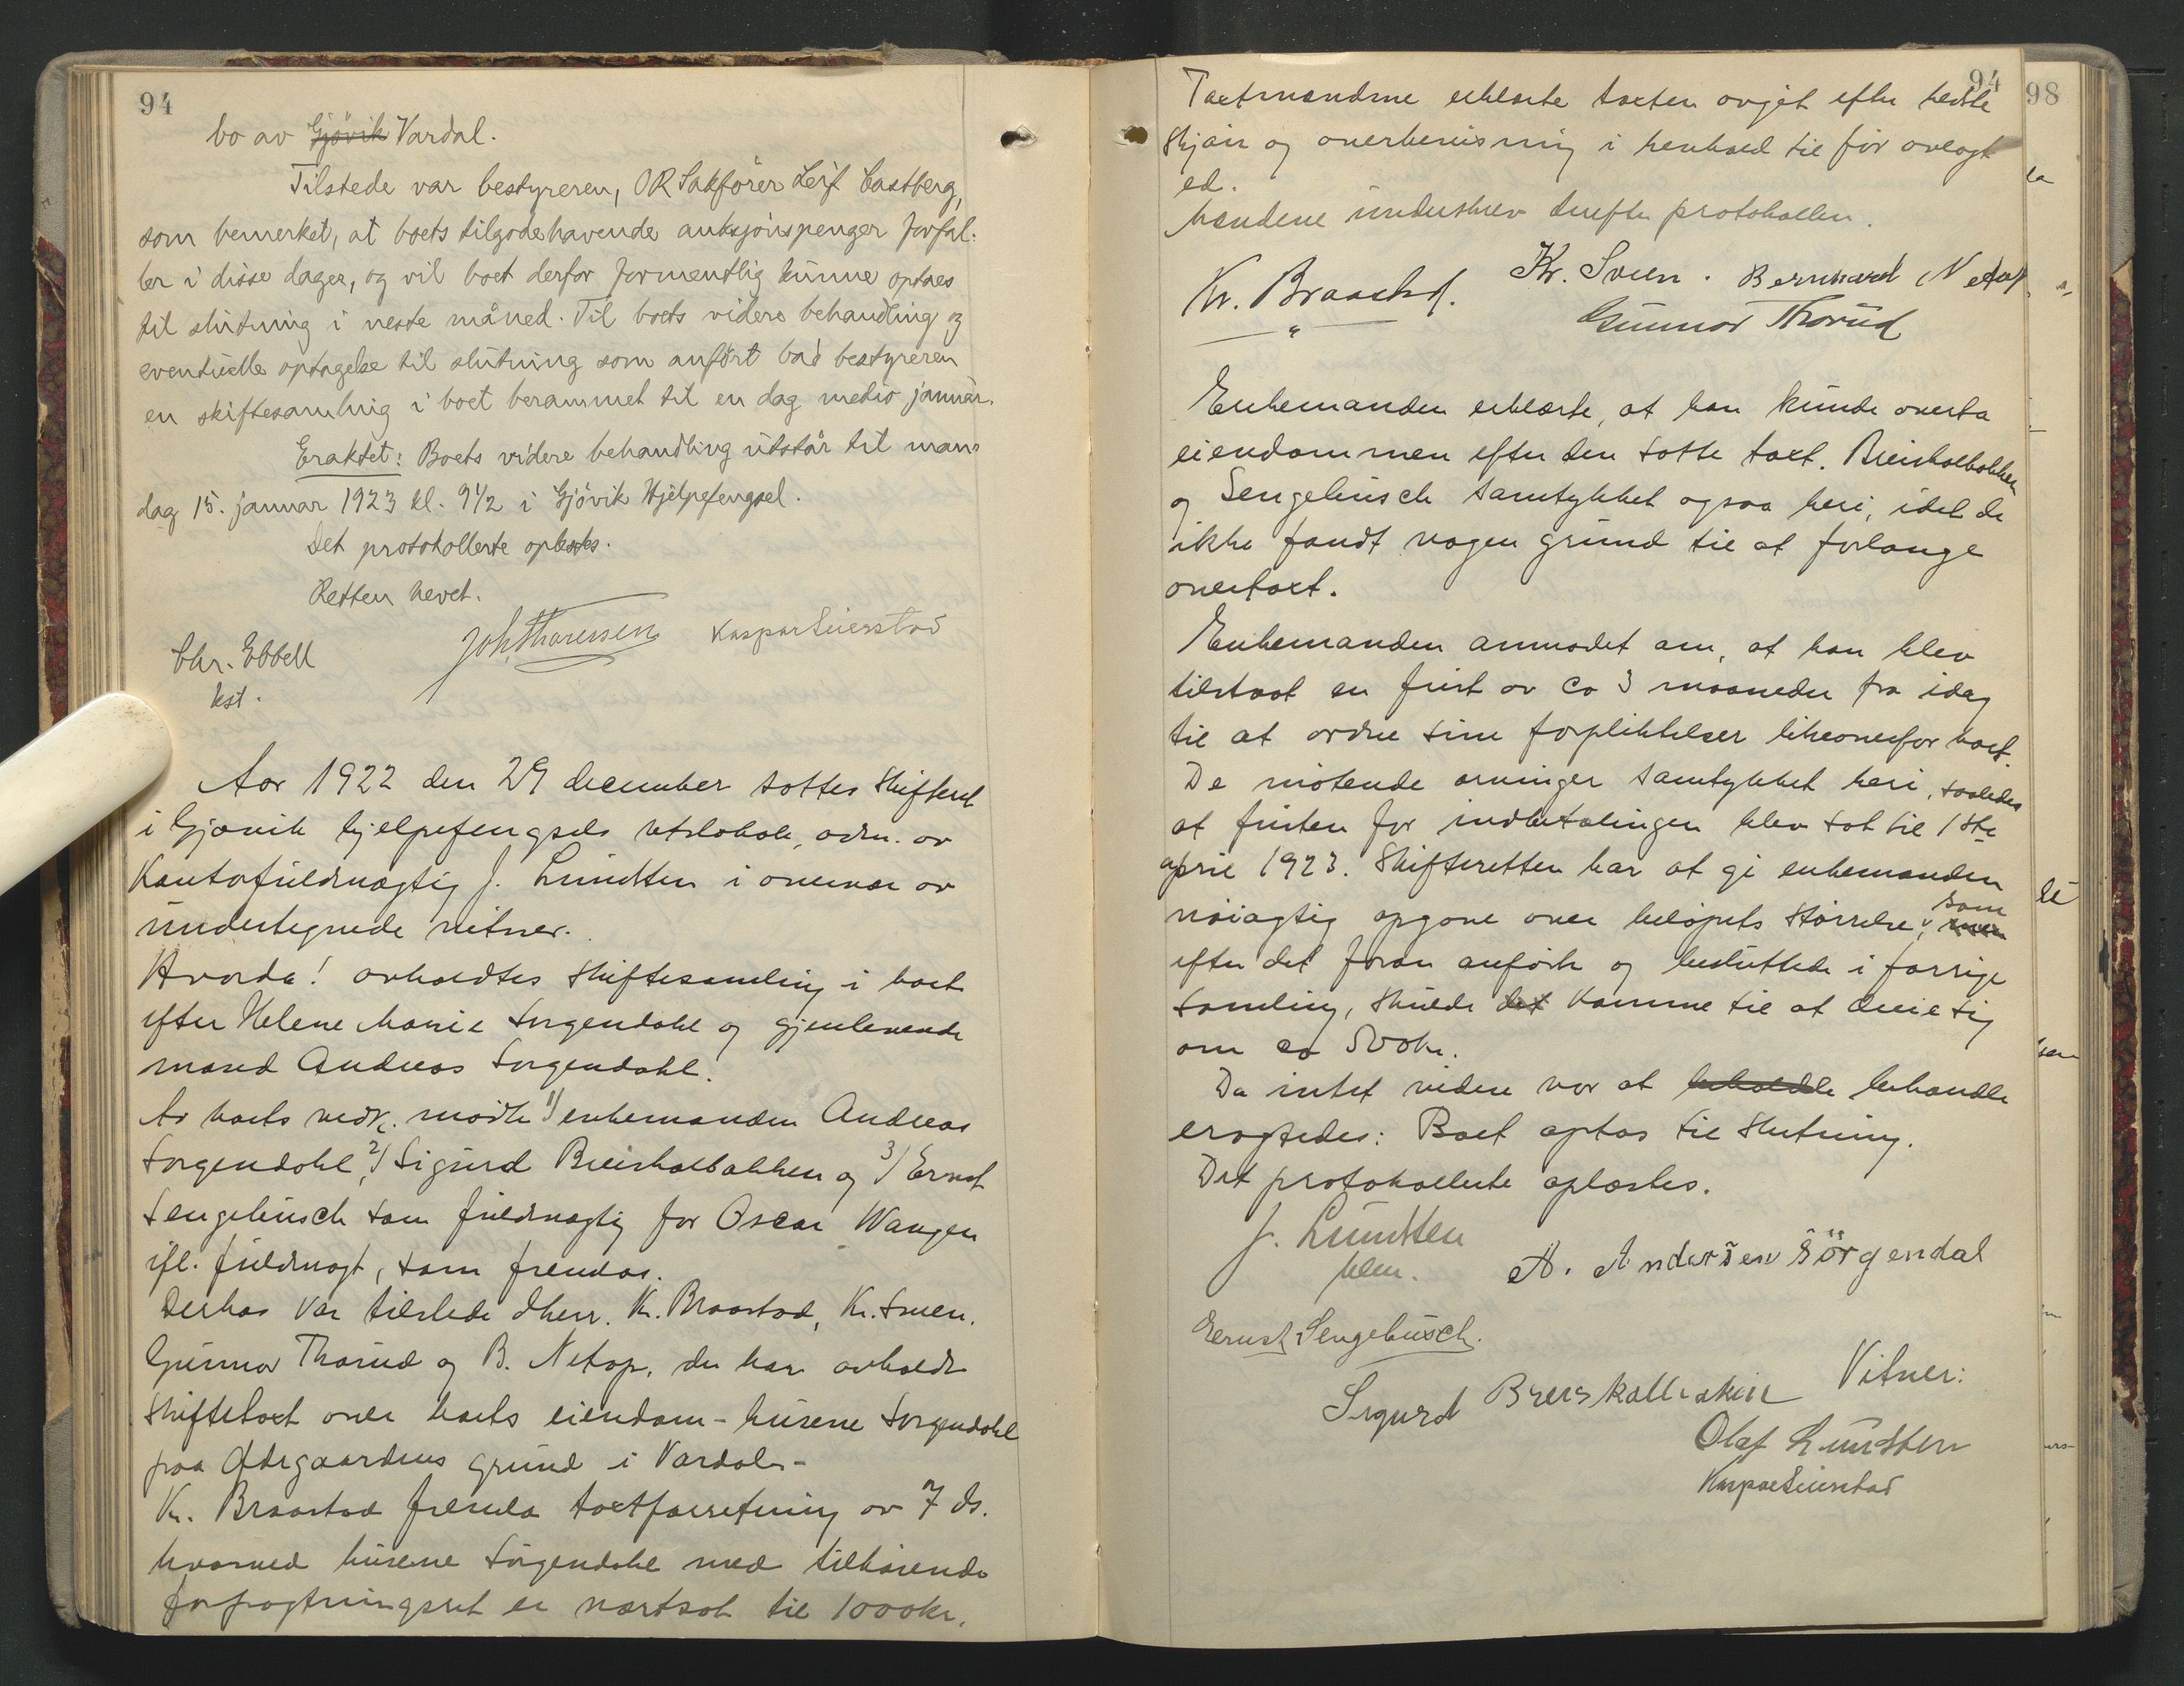 94
bo av Gjövik Vardal.
Tilstede var bestyreren, OR Sakförer Leif Castberg,
som bemerket, at boets tilgodehavende auksjonspenger forfal-
ler i disse dager, og vil boet derfor formentlig kunne optaes
til slutning i neste måned. Til boets videre behandling og
eventuelle optagelse til slutning som anfört bad bestyreren
en skiftesamling i boet berammet til en dag medio januar.
Eraktet: Boets videre behandling utstår til man-
dag 15. januar 1923 kl. 9½ i Gjövik Hjelpefengsel.
Det protokollerte oplæstes.
Retten hevet.
Chr. Ebbell
kst.
Joh. Thoresen Kaspar Seierstad
Aar 1922 den 29 december sattes Skifteret
i Gjøvik hjelpefengsels retslokale, adm. av
Kontorfuldmægtig J. Lundsten i overvær av
undertegnede vitner.
Hvorda! avholdtes skiftesamling i boet
efter Helene Marie Sørgendahl og gjenlevende
mand Andreas Sørgendahl.
Av boets vedk. mødte 1/ enkemanden Andreas
Sørgendahl, 2/ Sigurd Breiskalbakken og 3/ Ernst
Sengebusch som fuldmægtig for Oscar Wangen
ifl. fuldmagt, som fremlas.
Derhos var tilstede dherr. Kr. Braastad, Kr. Sveen,
Gunnar Thorud og B. Netop, der har avholdt
skiftetaxt over boets eiendom - husene Sørgendahl
paa Ødegaardens grund i Vardal. -
Kr. Braastad fremla taxtforretning av 7 ds.
hvorved husene Sørgendahl med tilhørende
forpagtningsret er værdsat til 1000 kr.
94
Taxtmændene erklærte taxten avgit efter bedste
skjøn og overbevisning i henhold til før avlagt
ed.
Mændene underskrev derefter protokollen.
Kr. Braastad. Kr. Sveen. Bernhard Netop
Gunnar Thorud
Enkemanden erklærte, at han kunde overta
eiendommen efter den satte taxt. Breiskalbakken
og Sengebusch samtykket ogsaa heri, idet de
ikke fandt nogen grund til at forlange
overtaxt.
Enkemanden anmodet om, at han blev
tilstaat en frist av ca 3 maaneder fra idag
til at ordne sine forpliktelser likeoverfor boet.
De møtende arvinger samtykket heri, saaledes
at fristen for indbetalingen blev sat til 1ste
april 1923. Skifteretten har at gi enkemanden
nøiagtig opgave over beløpets størrelse, som
efter det foran anførte og besluttede i forrige
samling, skulde det komme til at dreie sig
om ca 500 kr.
Da intet videre var at beholdle behandle
eragtedes: Boet optas til slutning.
Det protokollerte oplæstes.
J. Lundsten
A. Andersen Sörgendal
Ernst Sengebusch.
Sigurd Breiskallbakken
Vitner:
Olaf Lundsten
Kaspar Seierstad
98